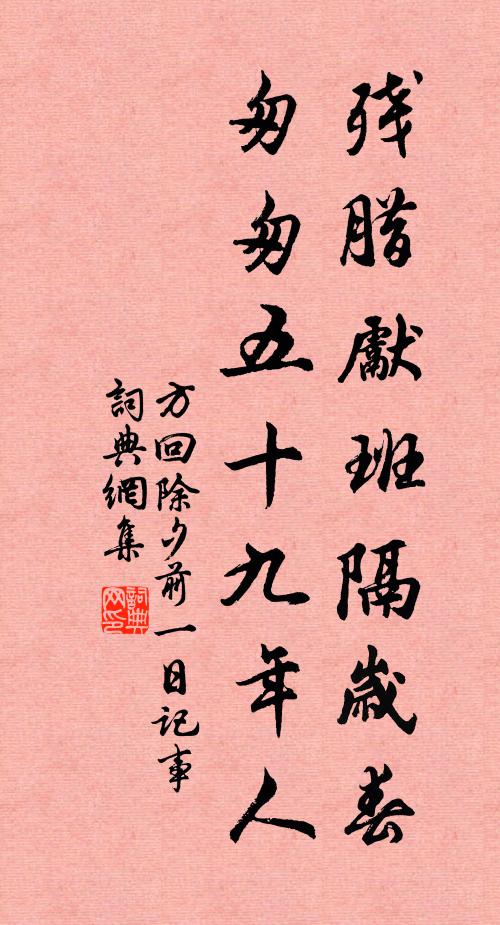 残腊獻班隔歲春
匆匆五十九年人
方回除夕前一日記事
詞典網集
詞典網印